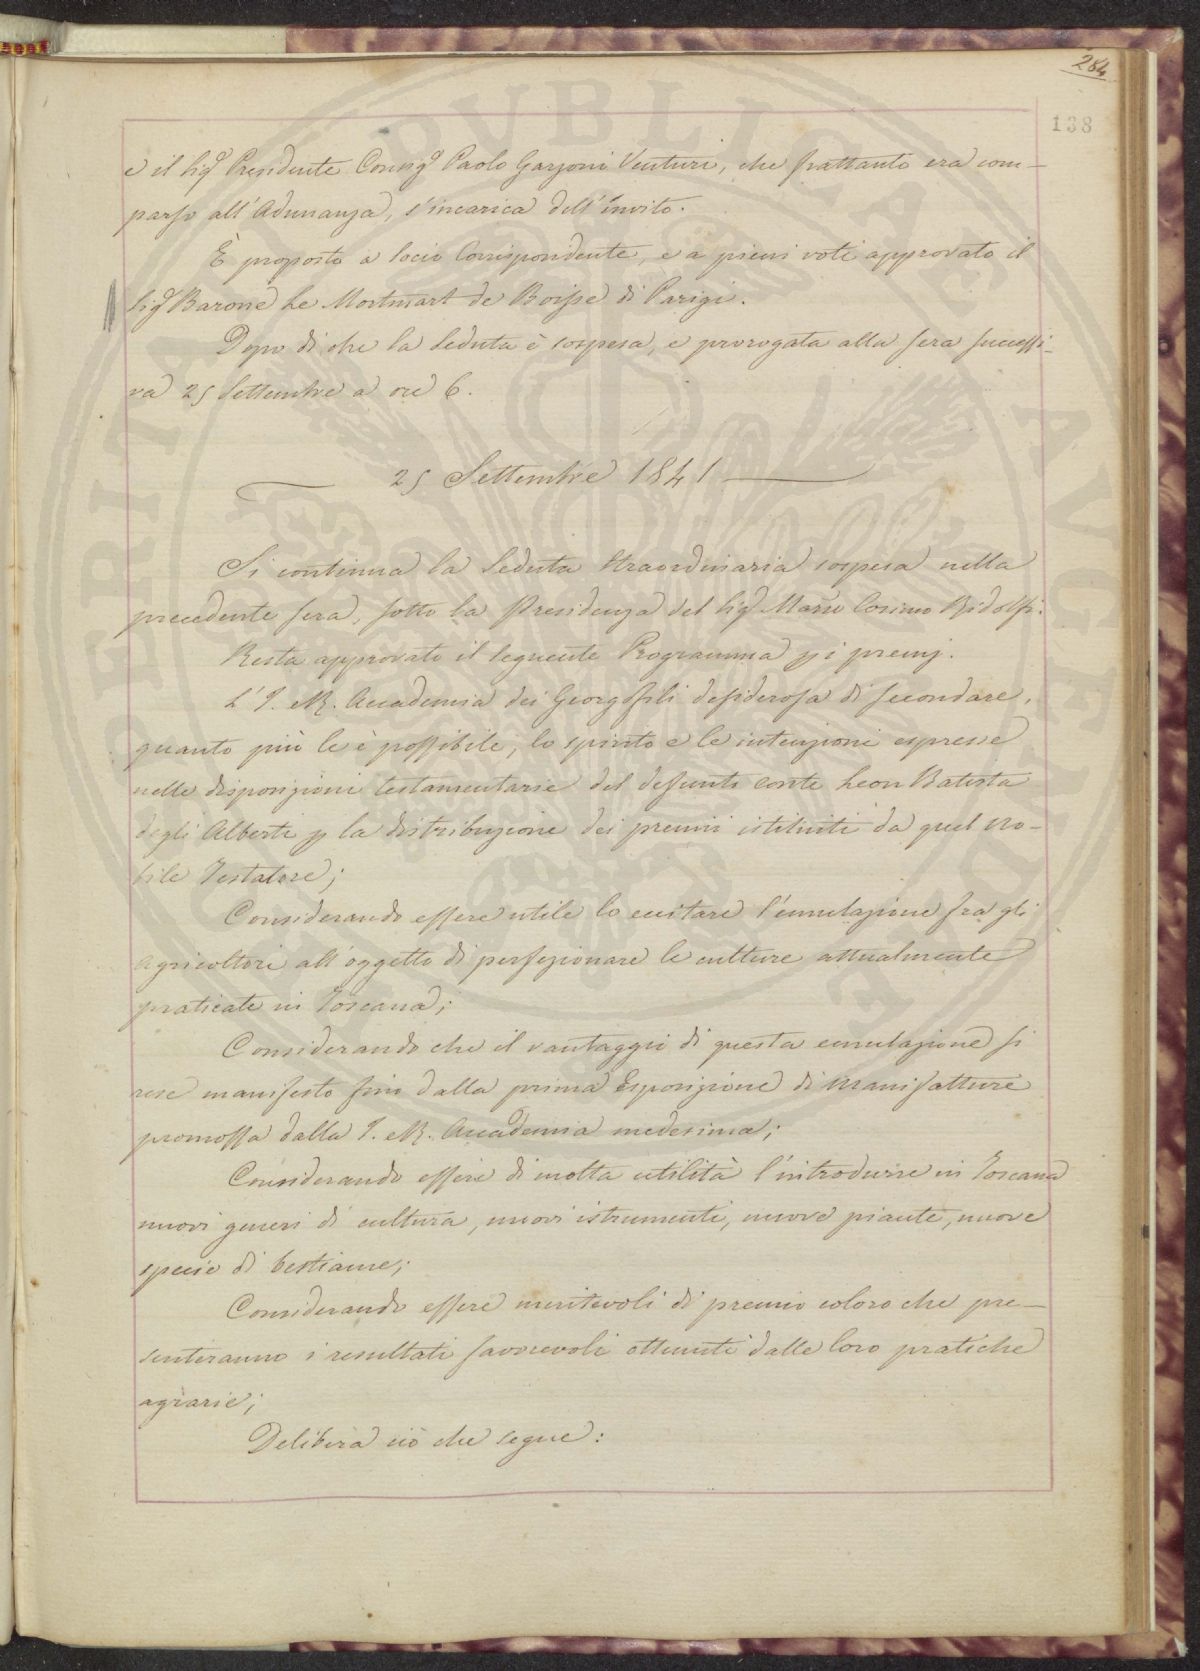 284
138
e il Sig.r Presidente Consig.r Paolo Garzoni Venturi, che frattanto era com-
parso all'Adunanza, s'incarica dell'invito.
È proposto a Socio Corrispondente, e a pieni voti approvato il
Sig.r Barone Le Mortmart de Boisse di Parigi.
Dopo di che la Seduta è sospesa, e prorogata alla sera successi-
va 25 Settembre a ore 6.
25 Settembre 1841
Si continua la Seduta Straordinaria sospesa nella
precedente sera, sotto la Presidenza del Sig.r March. Cosimo Ridolfi.
Resta approvato il seguente Programma p i premj.
L'I. e R. Accademia dei Georgofili desiderosa di secondare,
quanto più le è possibile, lo spirito e le intenzioni espresse
nelle disposizioni testamentarie del defunto conte Leon Batista
degli Alberti p la distribuzione dei premii istituiti da quel No-
bile Testatore;
Considerando essere utile lo eccitare l'emulazione fra gli
Agricoltori all'oggetto di perfezionare le culture attualmente
praticate in Toscana;
Considerando che il vantaggio di questa emulazione si
rese manifesto fino dalla prima Esposizione di Manifatture
promossa dalla I. e R. Accademia medesima;
Considerando essere di molta utilità l'introdurre in Toscana
nuovi generi di cultura, nuovi istrumenti, nuove piante, nuove
specie di bestiame;
Considerando essere meritevoli di premio coloro che pre-
senteranno i resultati favorevoli ottenuti dalle loro pratiche
agrarie;
Delibera ciò che segue: